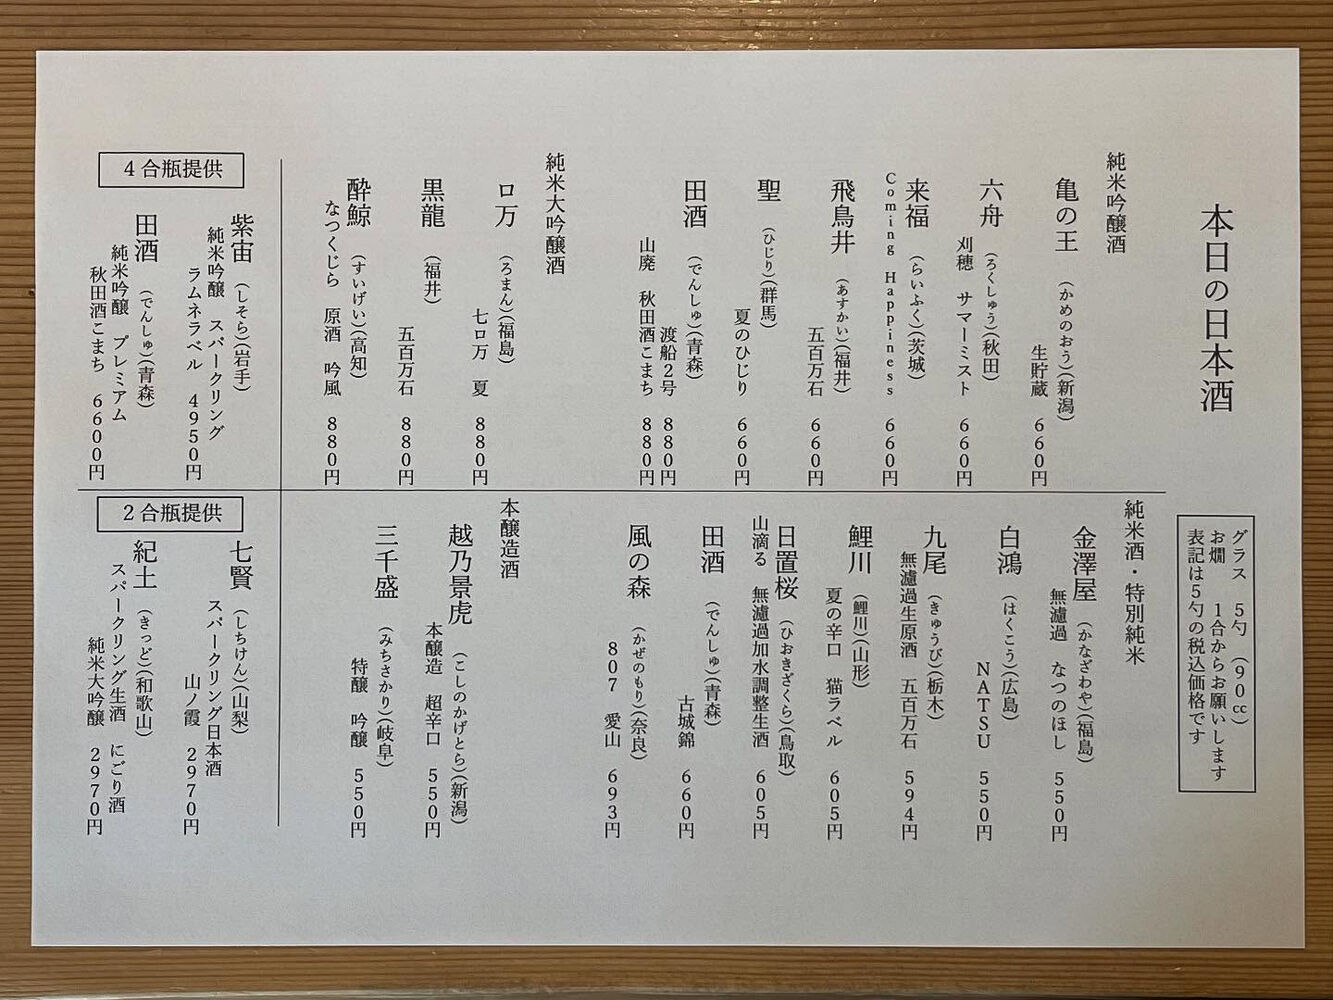 本日の日本酒
グラス　5勺　(90cc)
お燗　1合からお願いします
表記は5勺の税込価格です
純米吟醸酒
亀の王　(かめのおう)(新潟)
生貯蔵　660円
六舟　(ろくしゅう)(秋田)
刈穂　サマーミスト　660円
来福　(らいふく)(茨城)
Coming Happiness　660円
飛鳥井　(あすかい)(福井)
五百万石　660円
聖　(ひじり)(群馬)
夏のひじり　660円
田酒　(でんしゅ)(青森)
渡船2号　880円
山廃　秋田酒こまち　880円
純米大吟醸酒
ロ万　(ろまん)(福島)
七ロ万　夏　880円
黒龍　(福井)
五百万石　880円
酔鯨　(すいげい)(高知)
なつくじら　原酒　吟風　880円
純米酒・特別純米
金澤屋　(かなざわや)(福島)
無濾過　なつのほし　550円
白鴻　(はくこう)(広島)
NATSU　550円
九尾　(きゅうび)(栃木)
無濾過生原酒　五百万石　594円
鯉川　(鯉川)(山形)
夏の辛口　猫ラベル　605円
日置桜　(ひおきざくら)(鳥取)
山滴る　無濾過加水調整生酒　605円
田酒　(でんしゅ)(青森)
古城錦　660円
風の森　(かぜのもり)(奈良)
807　愛山　693円
本醸造酒
越乃景虎　(こしのかげとら)(新潟)
本醸造　超辛口　550円
三千盛　(みちさかり)(岐阜)
特醸　吟醸　550円
4合瓶提供
紫宙　(しそら)(岩手)
純米吟醸　スパークリング
ラムネラベル　4950円
田酒　(でんしゅ)(青森)
純米吟醸　プレミアム
秋田酒こまち　6600円
2合瓶提供
七賢　(しちけん)(山梨)
スパークリング日本酒
山ノ霞　2970円
紀土　(きっど)(和歌山)
スパークリング生酒　にごり酒
純米大吟醸　2970円